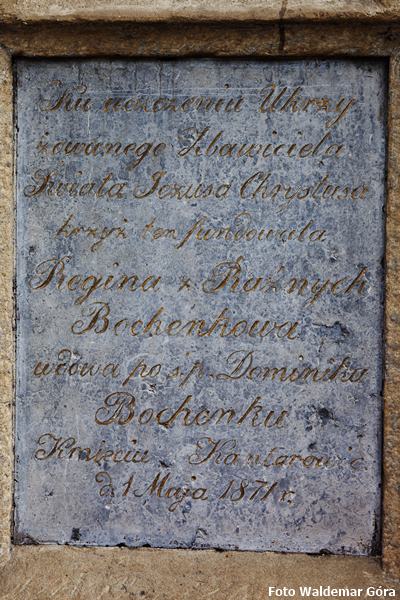 Ku uczczeniu Ukrzy
żowanego Zbawiciela
Świata Jezusa Chrystusa
krzyż ten fundowała
Regina z Raźnych
Bochenkowa
wdowa po ś.p. Dominiku
Bochenku
d. 1 Maja 1871 r.
Foto Waldemar Góra